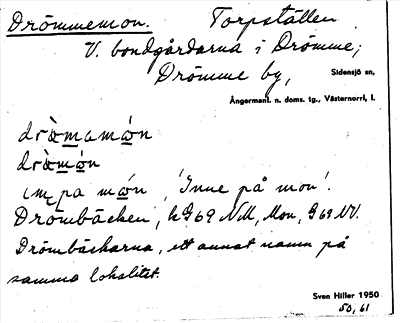 Drömmemon. Torpställen
V. bondgårdarna i Drömme,
Drömme by, Sidensjö sn,
Ångermanl. n. doms. tg., Västernorrl. l.
dròmamón
dròmón
pa món, 'Inne på mon'.
Drömbäcken, h G69 NM, Mon, G69 NV.
Drömbäckarna, ett annat namn på
samma lokalitet.
Sven Hiller 1950
50, 61